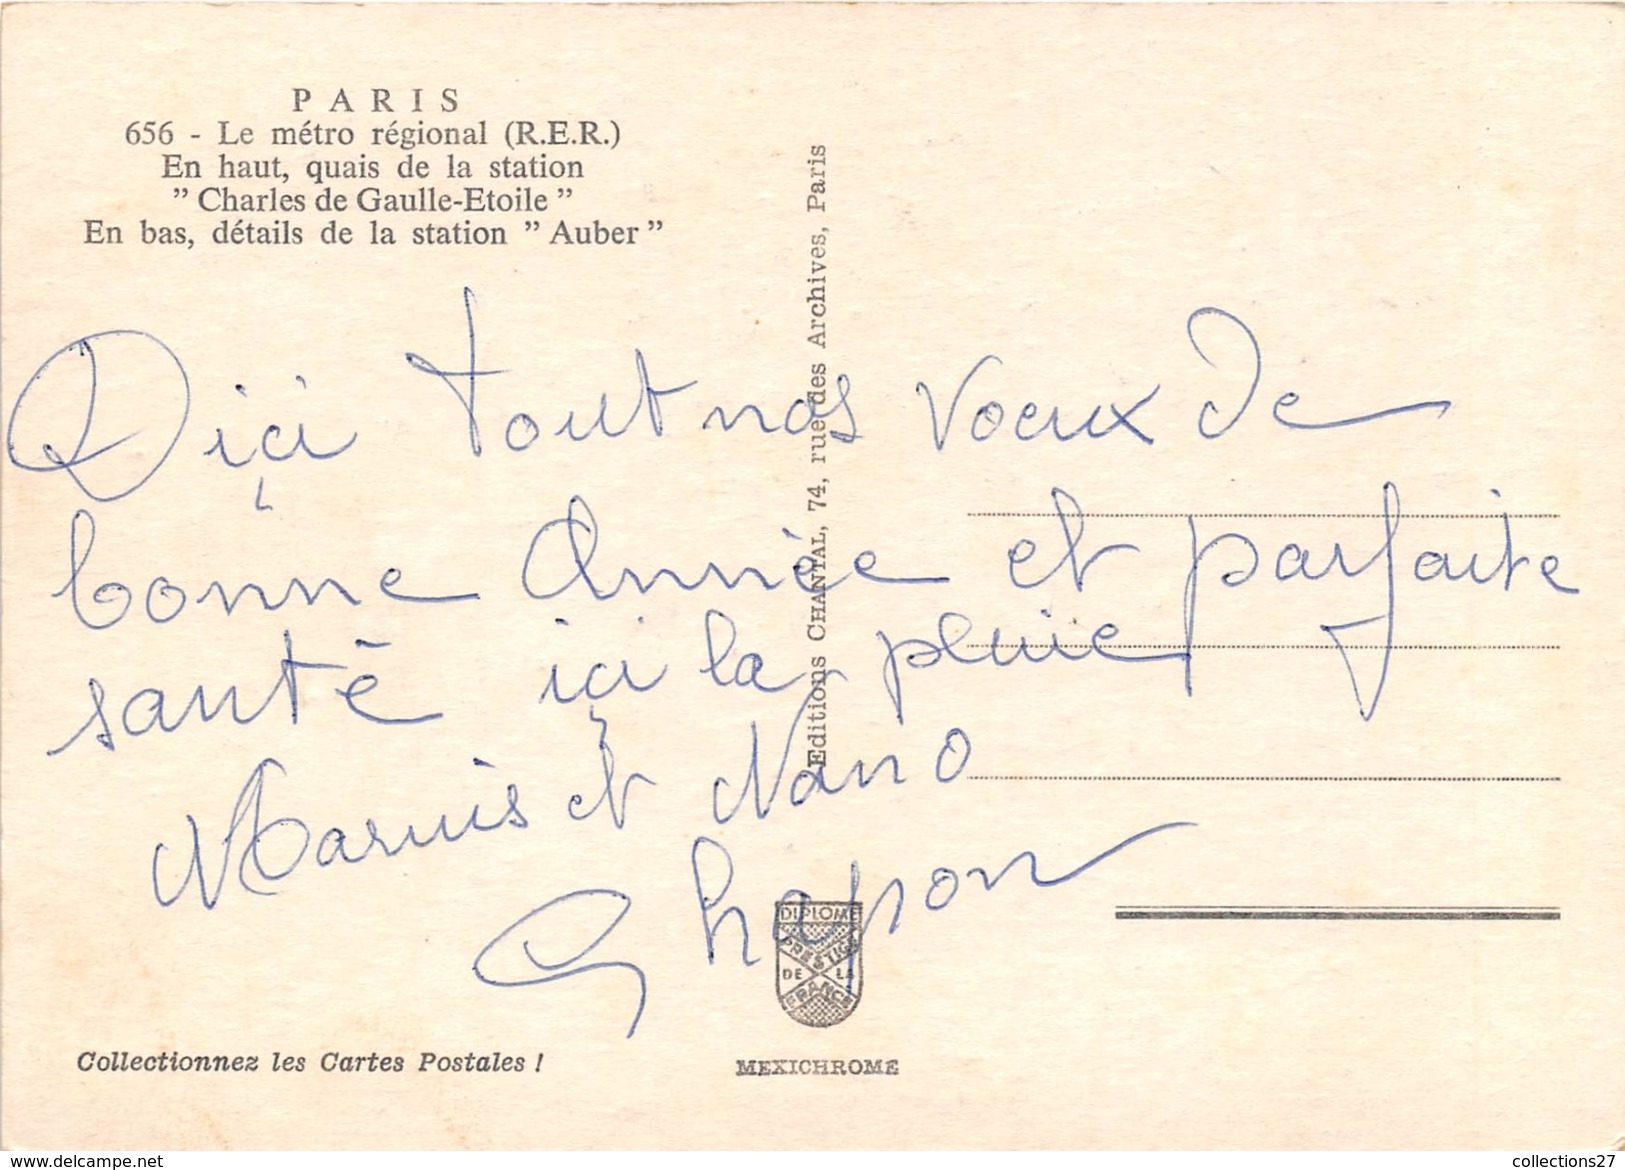 PARIS
656 - Le métro régional (R.E.R.)
En haut, quais de la station
" Charles de Gaulle-Etoile "
En bas, détails de la station " Auber "
Editions CHANTAL, 74, rue des Archives, Paris
Diçi tout nos voeux de
bonne Année et parfaite
santé içi la pluie
Maruis et Nano
Chapon
DIPLOME
PRESTIGE
DE LA
FRANCE
Collectionnez les Cartes Postales !
MEXICHROME
www.delcampe.net
collections27